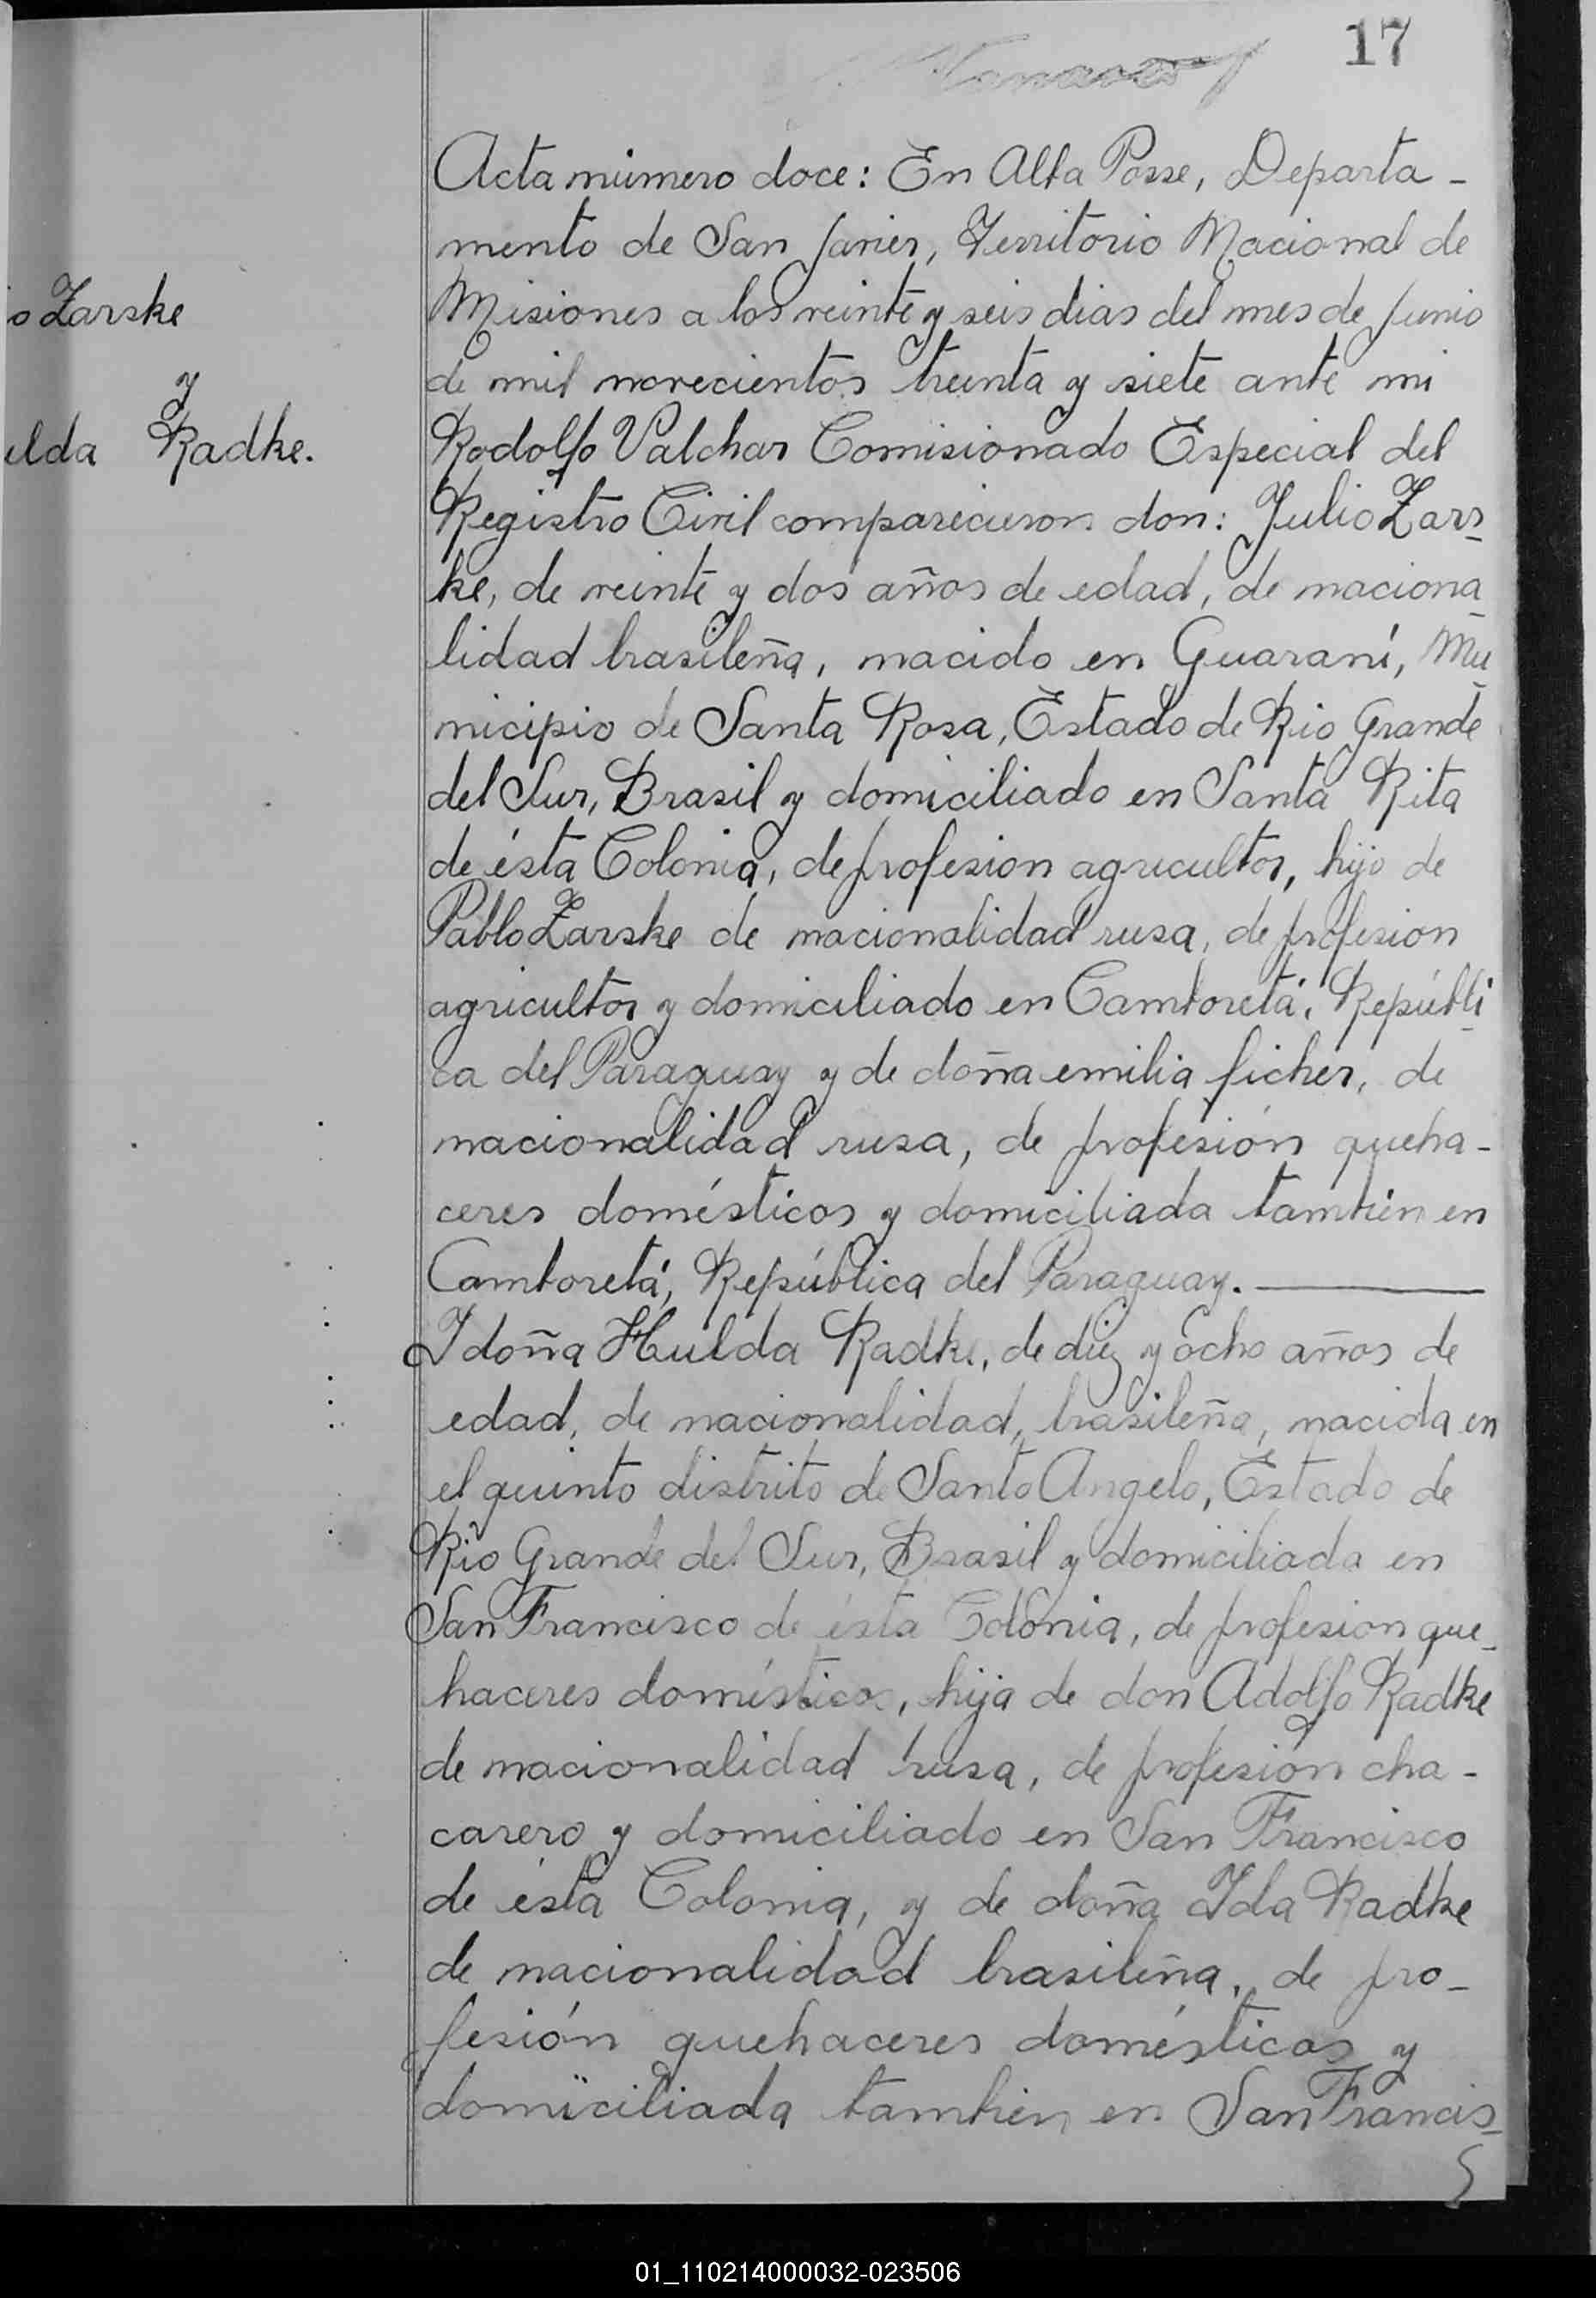 17
o Zarske
y
ulda Radke.
Acta número doce: En Alba Posse, Departa-
mento de San Javier, Territorio Nacional de
Misiones a los veinte y seis dias del mes de Junio
de mil novecientos treinta y siete ante mi
Rodolfo Valchar Comisionado Especial del
Registro Civil comparecieron don: Julio Zars-
ke, de veinte y dos años de edad, de naciona-
lidad brasileña, nacido en Guaraní, Mu-
nicipio de Santa Rosa, Estado de Rio Grande
del Sur, Brasil y domiciliado en Santa Rita
de ésta Colonia, de profesion agricultor, hijo de
Pablo Zarske de nacionalidad rusa, de profesion
agricultor y domiciliado en Camboretá, Repúbli-
ca del Paraguay y de doña emilia ficher, de
nacionalidad rusa, de profesión queha-
ceres domésticos y domiciliada tambien en
Camboretá, República del Paraguay.
Y doña Hulda Radke, de diez y ocho años de
edad, de nacionalidad, brasileña, nacida en
el quinto distrito de Santo Angelo, Estado de
Rio Grande del Sur, Brasil y domiciliada en
San Francisco de ésta Colonia, de profesion que-
haceres domésticos, hija de don Adolfo Radke
de nacionalidad rusa, de profesión cha-
carero y domiciliado en San Francisco
de ésta Colonia, y de doña Ida Radke
de nacionalidad brasileña, de pro-
fesión quehaceres domésticos y
domiciliada tambien en San Francis-
01_110214000032-023506